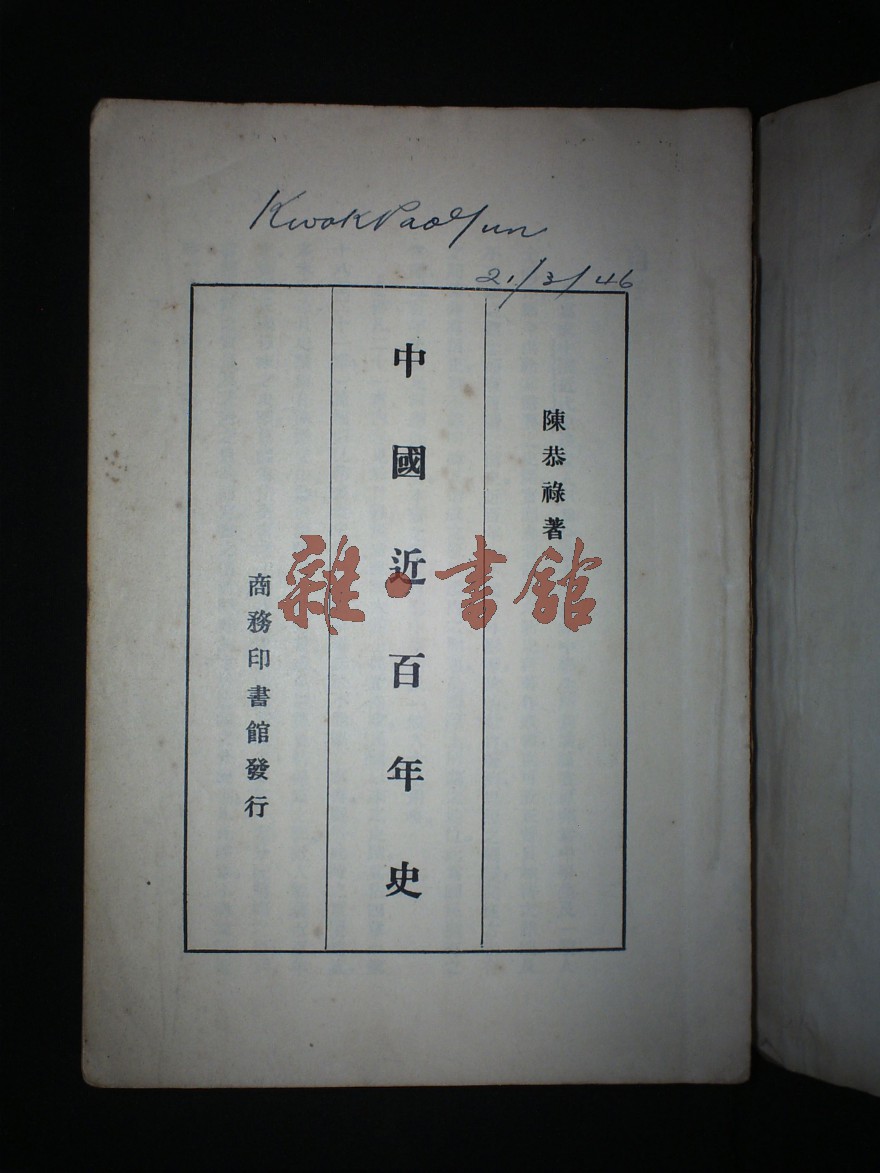 Kwok Pao Yun
21/3/46
陳恭祿著
中國近百年史
商務印書館發行
雜·書館